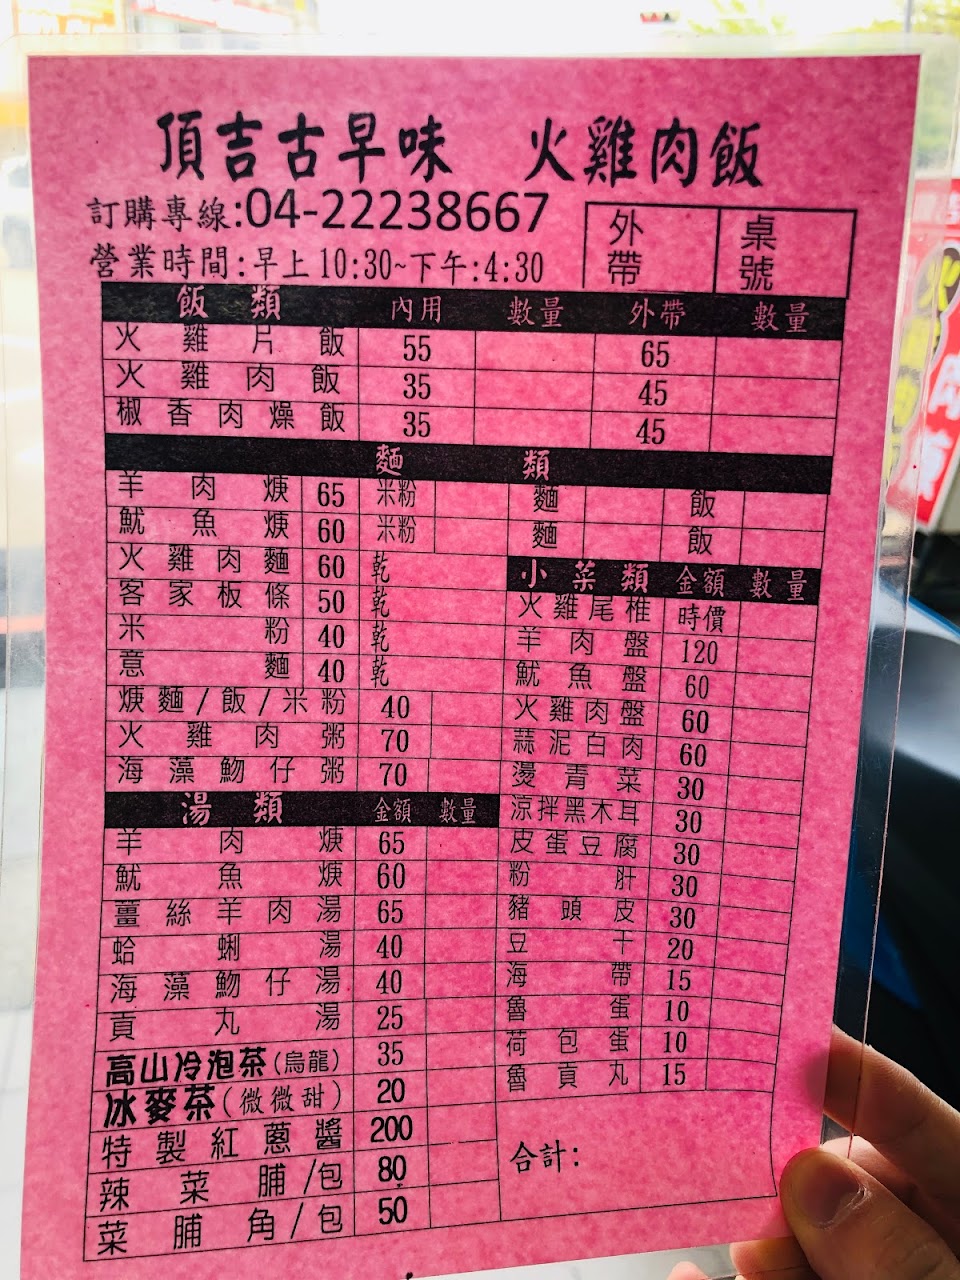 頂吉古早味 火雞肉飯
訂購專線:04-22238667
營業時間:早上10:30~下午:4:30
外帶 桌號
飯類 內用 數量 外帶 數量
火雞片飯 55 65
火雞肉飯 35 45
椒香肉燥飯 35 45
麵類
羊肉焿 65 米粉 麵 飯
魷魚焿 60 米粉 麵 飯
火雞肉麵 60 乾
客家板條 50 乾
米粉 40 乾
意麵 40 乾
焿麵/飯/米粉 40
火雞肉粥 70
海藻魩仔粥 70
湯類 金額 數量
羊肉焿 65
魷魚焿 60
薑絲羊肉湯 65
蛤蜊湯 40
海藻魩仔湯 40
貢丸湯 25
高山冷泡茶(烏龍) 35
冰麥茶(微微甜) 20
特製紅蔥醬 200
辣菜脯/包 80
菜脯角/包 50
小菜類 金額 數量
火雞尾椎 時價
羊肉盤 120
魷魚盤 60
火雞肉盤 60
蒜泥白肉 60
燙青菜 30
涼拌黑木耳 30
皮蛋豆腐 30
粉肝 30
豬頭皮 30
豆干 20
海帶 15
魯蛋 10
荷包蛋 10
魯貢丸 15
合計: